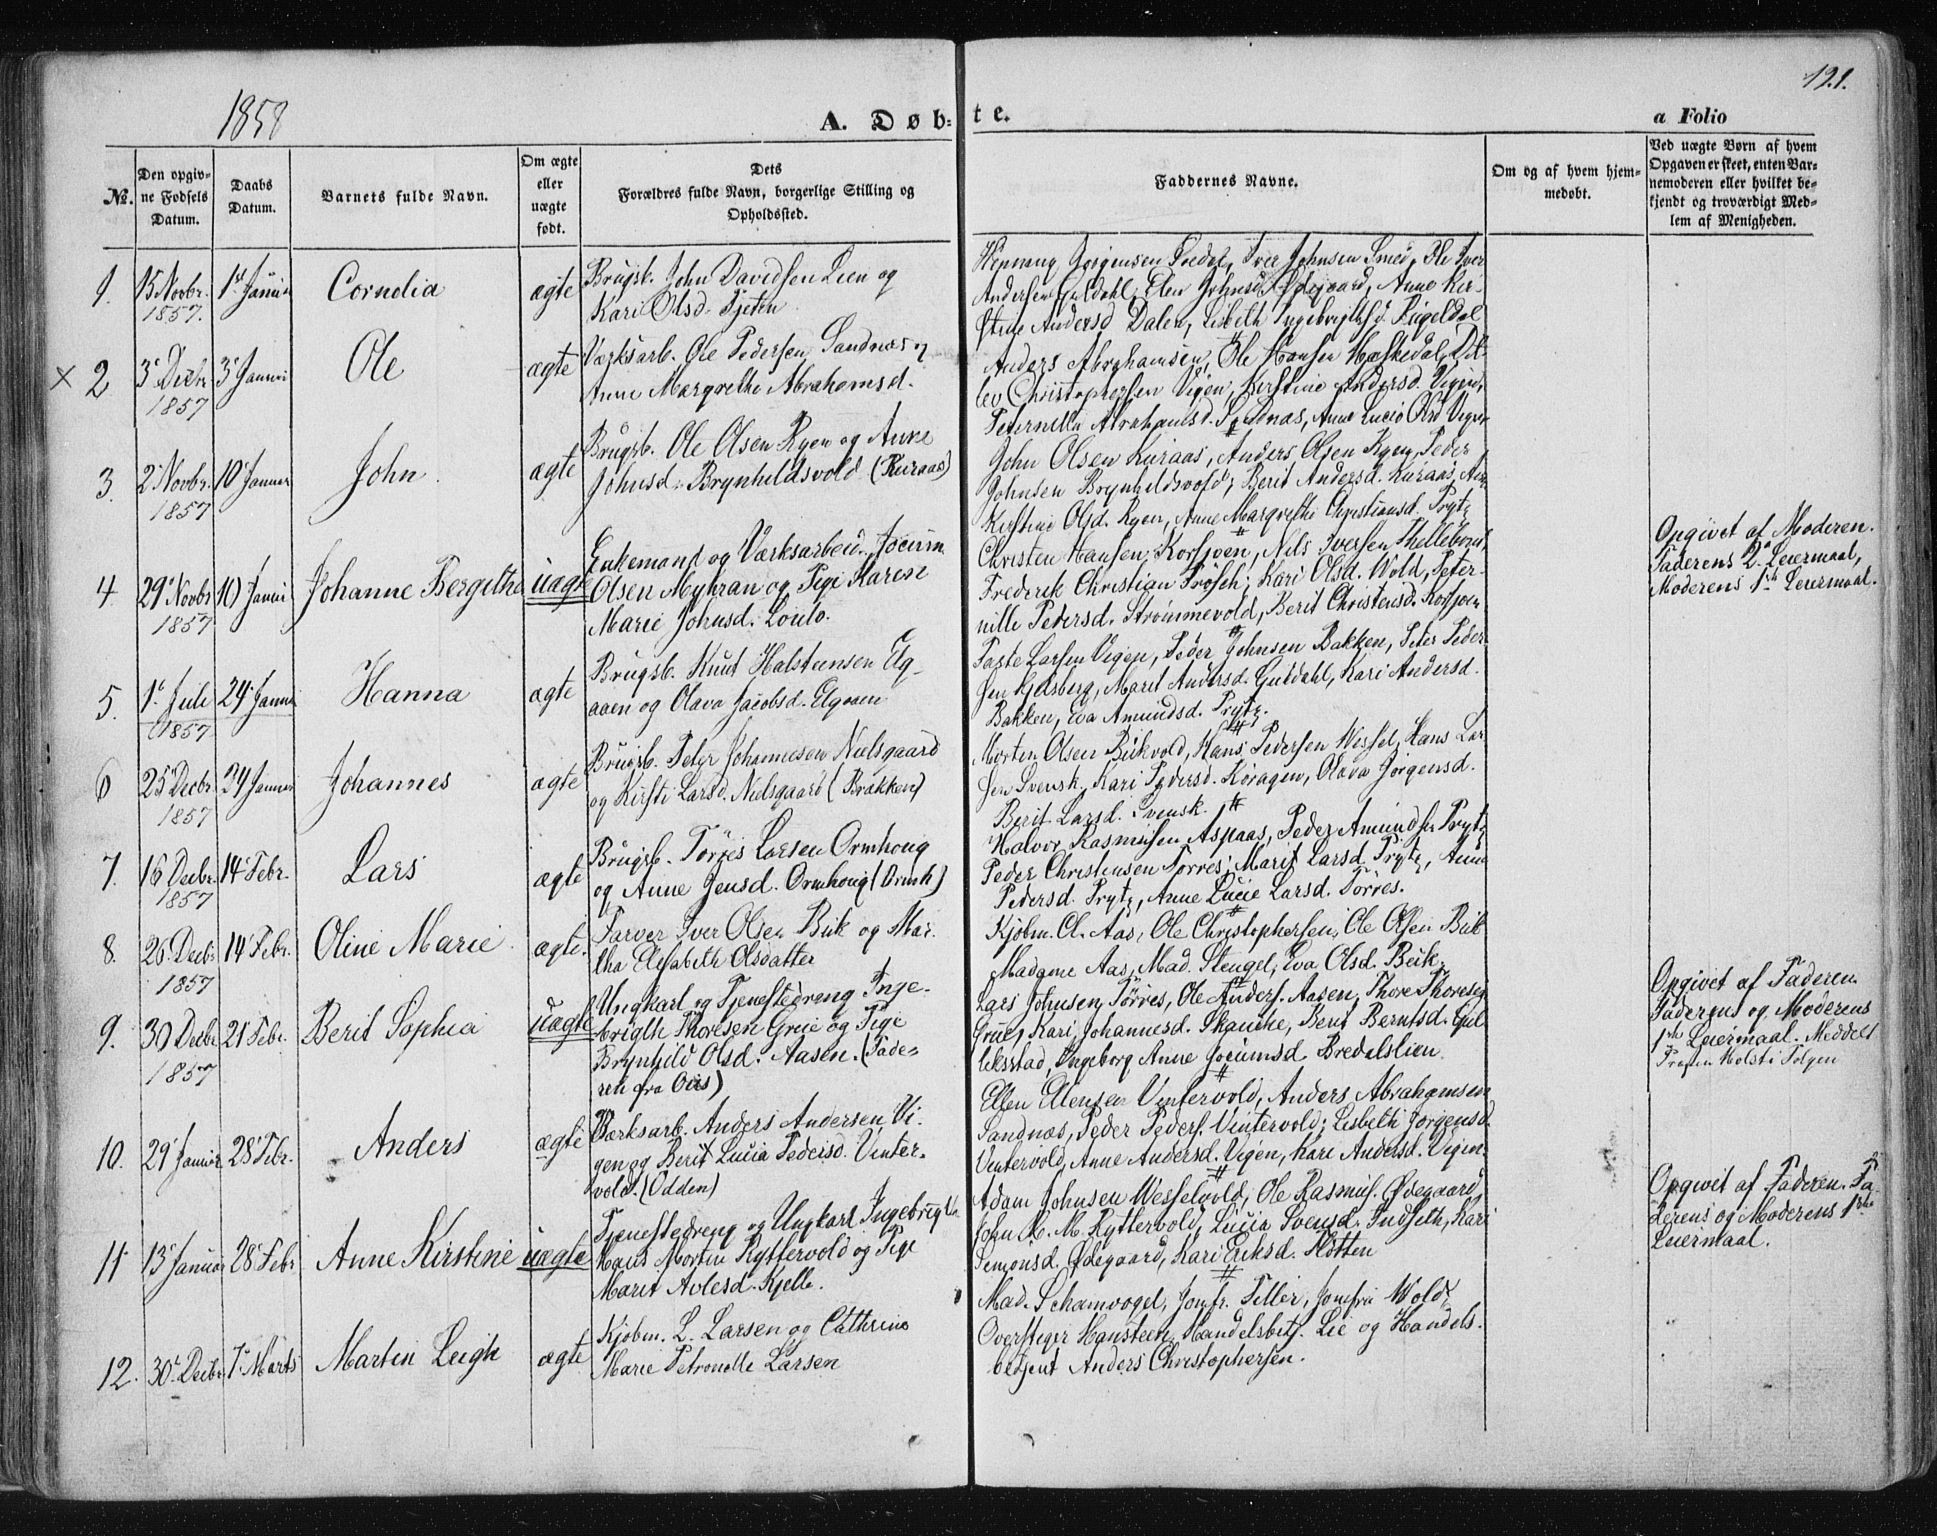 1858
121.
A. Døb-
te.
a Folio
No.
Den opgiv-
ne Fødsels
Datum.
Daabs
Datum.
Barnets fulde Navn.
Om ægte
eller
uægte
født.
Dets
Forældres fulde Navn, borgerlige Stilling og
Opholdssted.
Faddernes Navne.
Om og af hvem hjem-
medøbt.
Ved uægte Børn af hvem
Opgaven er skeet, enten Bar-
nemoderen eller hvilket be-
kjendt og troværdigt Med-
lem af Menigheden.
1.
15 Novbr.
1857.
1ste Januar
Cornelia
ægte
Brugsb. John Davidsen Lien og
Kari Olsd. Tjeten
Henning Jørgensen Iver Johnsen Smed, Ole Iver
Andersen Guldahl, Elen Johnsd. Ødegaard, Anne Kir-
stine Andersd Dalen, Lisbeth Ingebrigtsd.
× 2
3de Decbr
1857
3de Januar
Ole
ægte
Værksarb. Ole Pedersen Sandnæs og
Anne Margrethe Abrahamsd.
Anders Abrahamsen, Ole Hansen Dit-
lev Christophersen Vigen, Kirstine Andersd. Vigen,
Peternella Abrahamsd. Sandnæs, Anne Lucie Olsd Vigen
3.
2 Novbr.
1857
10 Januar
John.
ægte
Brugsb. Ole Olsen Ryen og Anne
Johnsd. Brynhildsvold (Kuraas)
John Olsen Kuraas, Anders Olsen Ryen, Peder
Johnsen Brynhildsvold; Berit Andersd. Kuraas, Anne
Kirstine Olsd. Ryen, Anne Margrethe Christiansd. Prytz
4.
29 Novbr
1857
10 Januar
Johanne Bergithe
uægte
Enkemand og Værksarbeid. Jocum
Olsen Myhran og Pige Karen
Marie Johnsd. Louto.
Christen Hansen Korsjoen, Nils Iversen
Frederik Christian Prøsch; Kari Olsd. Wold, Peter-
nille Pedersd. Strømmevold, Berit Christensd. Korsjoen
Opgivet af Moderen.
Faderens 2de Leiermaal,
Moderens 1ste Leiermaal.
5.
1ste Juli
1857
24 Januar
Hanna
ægte
Brugsb. Knut Halsteinsen Elg-
aaen og Olava Jacobsd. Elgaaen
Faste Larsen Vigen, Peder Johnsen Bakken, Peter Peder-
sen Gjelsberg, Marit Andersd. Guldahl, Kari Andersd.
Bakken, Eva Amundsd. Prytz.
6
25 Decbr.
1857
24 Januar
Johannes
ægte
Brugsb. Peter Johannesen Nielsgaard
og Kirsti Larsd. Nielsgaard (Brækken)
Morten Olsen Bukvold, Hans Pedersen Wessel, Hans Lar-
sen Svensk, Kari Pedersd. Koragen, Olava Jørgensd.
Berit Larsd. Svensk.
7.
16 Decbr.
1857
14 Febr.
Lars
ægte
Brugsb. Törres Larsen Ormhoug
og Anne Jensd. Ormhoug (Ormh)
Halvor Rasmusen Aspaas, Peder Amundsen Prytz
Peder Christensen Torres; Marit Larsd. Prytz, Anne
Pedersd. Prytz, Anne Lucie Larsd. Torres.
8.
26 Decbr
1857
14 Febr.
Oline Marie
ægte.
Farver Iver Olsen Buk og Mar-
tha Elisabeth Olsdatter
Kjøbm. Cl. Aas, Ole Christophersen, Ole Olsen Buk
Madame Aas, Mad. Stengel, Eva Olsd. Buk.
9.
30 Decbr
1857
21 Febr.
Berit Sophia
uægte
Ungkarl og Tjenestedreng Inge-
brigth Thoresen Grue og Pige
Brynhild Olsd. Aasen. (Fade-
ren fra Oüs)
Lars Johnsen Törres, Ole Anders. Aasen, Thore Thoresen
Grue, Kari Johannesd. Skancke, Berit Berntsd. Gul-
likstad, Ingeborg Anne Jocumsd. Bredalslien.
Opgivet af Faderen.
Faderens og Moderens
1ste Leiermaal. Meddelt
Præsten Holst i Tolgen
10.
29 Januar
28 Febr.
Anders
ægte
Værksarb. Anders Andersen Vi-
gen og Berit Lucia Pedersd. Vinter-
vold. (Odden)
Ellen Ellensen Vintervold, Anders Abrahamsen
Sandnæs, Peder Peders. Vintervold; Lisbeth Jørgensd.
Vintervold, Anne Andersd. Vigen, Kari Andersd. Vigen.
11
13 Januar
28 Febr
Anne Kirstine
uægte
Tjenestedreng og Ungkarl Ingebrigt
Hans Morten Ryttervold og Pige
Marit Avlesd. Kjelle.
Adam Johnsen Wesselvold, Ole Rasmus. Ødegaard
John H. M. Ryttervold, Lucia Svensd. Indseth, Kari
Semonsd. Ødegaard, Kari Eriksd. Flotten
Opgivet af Faderen. Fa-
derens og Moderens 1ste
Leiermaal.
12.
30 Decbr
7de Marts
Martin Leigh
ægte
Kjøbm. L. Larsen og Cathrine
Marie Petronelle Larsen
Mad. Schamvogel, Jomfr. Tiller, Jomfru Wold,
Overstiger Hansteen, Handelsbetj. Lie og Handels-
betjent Anders Christophersen.